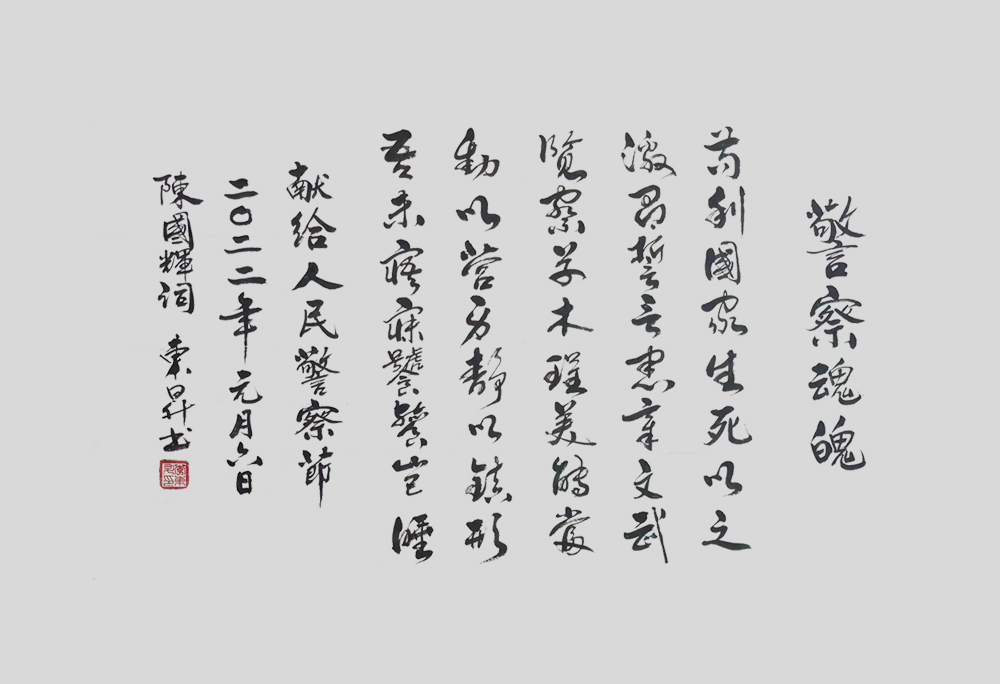 警察魂魄
苟利國家生死以之
激昂誓言惠章文武
覽察草木理美鷸裳
動以營身靜以鎮形
吾未寤寐饕餮豈睡
献给人民警察節
二〇二二年元月六日
陳國輝词 東昇书